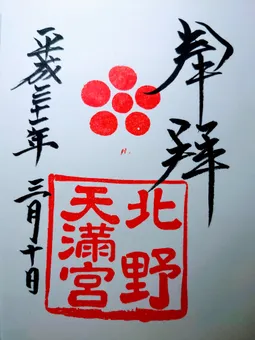 奉拝
北野
天満宮
平成三十一年 三月十日